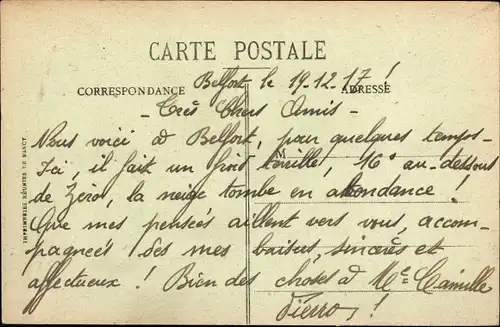 CARTE POSTALE
CORRESPONDANCE
ADRESSE
Belfort le 19-12-17!
- Très Chers Amis -
Nous voici à Belfort, pour quelques temps-
Ici, il fait un froid terrible, 16° au-dessous
de Zéro, la neige tombe en abondance !
Que mes pensées aillent vers vous, accom-
pagnées des mes baisers sincères et
affectueux ! Bien des choses à Me Camille
Pierro !
IMPRIMERIES RÉUNIES DE NANCY
M